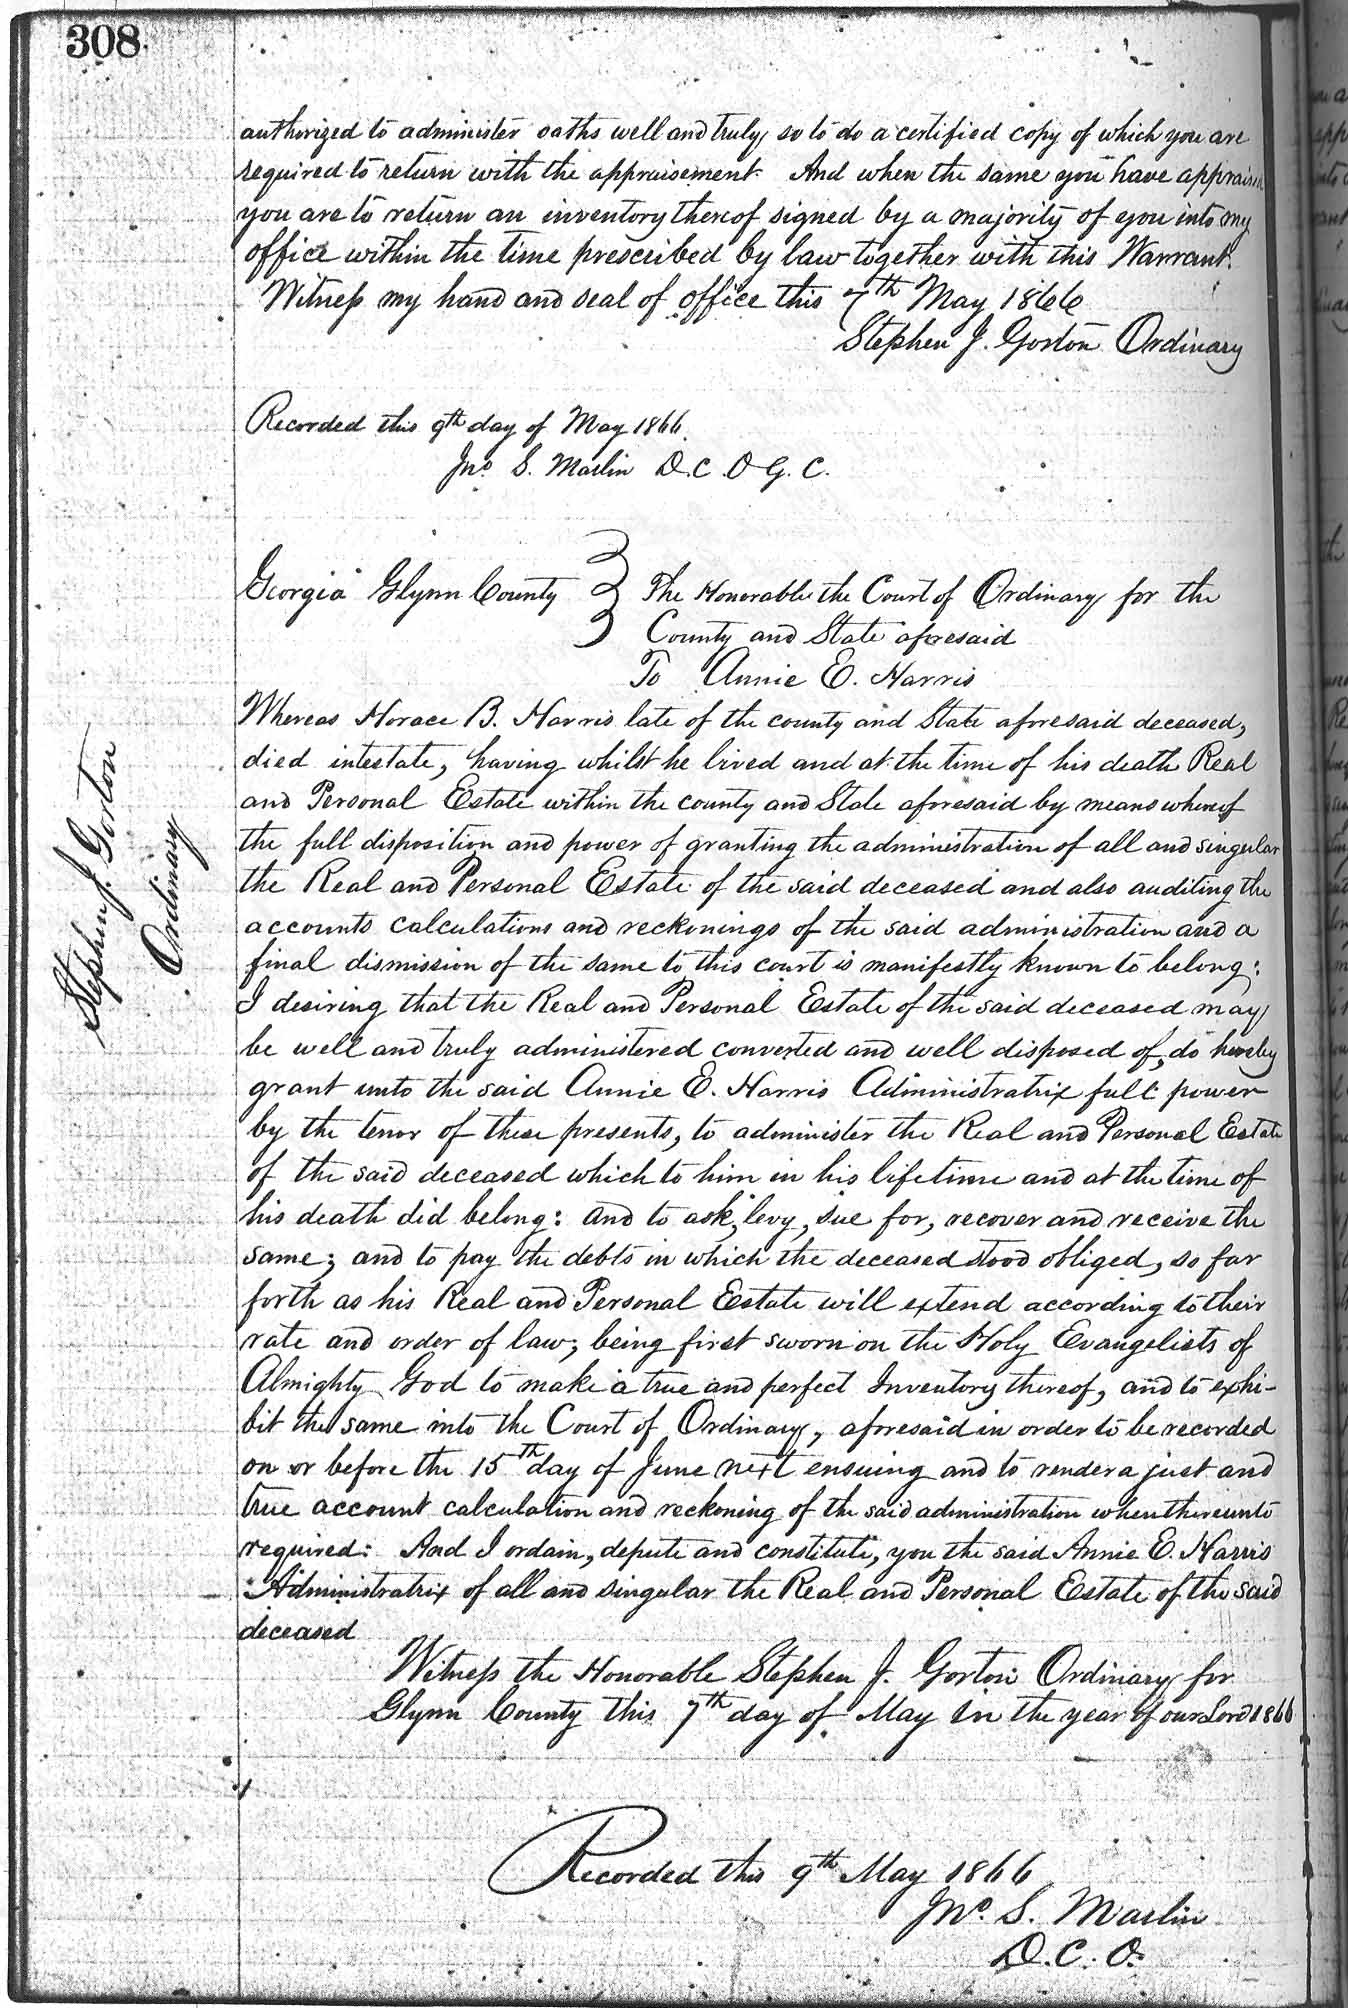 308
authorized to administer oaths well and truly so to do a certified copy of which you are
required to return with the appraisement. And when the same you have appraised
you are to return an inventory thereof signed by a majority of you into my
office within the time prescribed by law together with this Warrant.
Witness my hand and seal of office this 7th May 1866
Stephen J. Gorton Ordinary
Recorded this 9th day of May 1866.
Jno. S. Marlin D. C. O G. C.
Georgia Glynn County } The Honorable the Court of Ordinary for the
County and State aforesaid
To Annie E. Harris
Whereas Horace B. Harris late of the county and State aforesaid deceased,
died intestate, having whilst he lived and at the time of his death Real
and Personal Estate within the county and State aforesaid by means whereof
the full disposition and power of granting the administration of all and singular
the Real and Personal Estate of the said deceased and also auditing the
accounts calculations and reckonings of the said administration and a
final dismission of the same to this court is manifestly known to belong:
I desiring that the Real and Personal Estate of the said deceased may
be well and truly administered converted and well disposed of, do hereby
grant unto the said Annie E. Harris Administratrix full power
by the tenor of these presents, to administer the Real and Personal Estate
of the said deceased which to him in his lifetime and at the time of
his death did belong: and to ask, levy, sue for, recover and receive the
same; and to pay the debts in which the deceased stood obliged, so far
forth as his Real and Personal Estate will extend according to their
rate and order of law; being first sworn on the Holy Evangelists of
Almighty God to make a true and perfect Inventory thereof, and to exhi-
bit the same into the Court of Ordinary, aforesaid in order to be recorded
on or before the 15th day of June next ensuing and to render a just and
true account calculation and reckoning of the said administration when thereunto
required: And I ordain, depute and constitute, you the said Annie E. Harris
Administratrix of all and singular the Real and Personal Estate of the said
deceased
Witness the Honorable Stephen J. Gorton Ordinary for
Glynn County this 7th day of May in the year of our Lord 1866
Stephen J. Gorton
Ordinary
Recorded this 9th May 1866
Jno. S. Marlin
D. C. O.